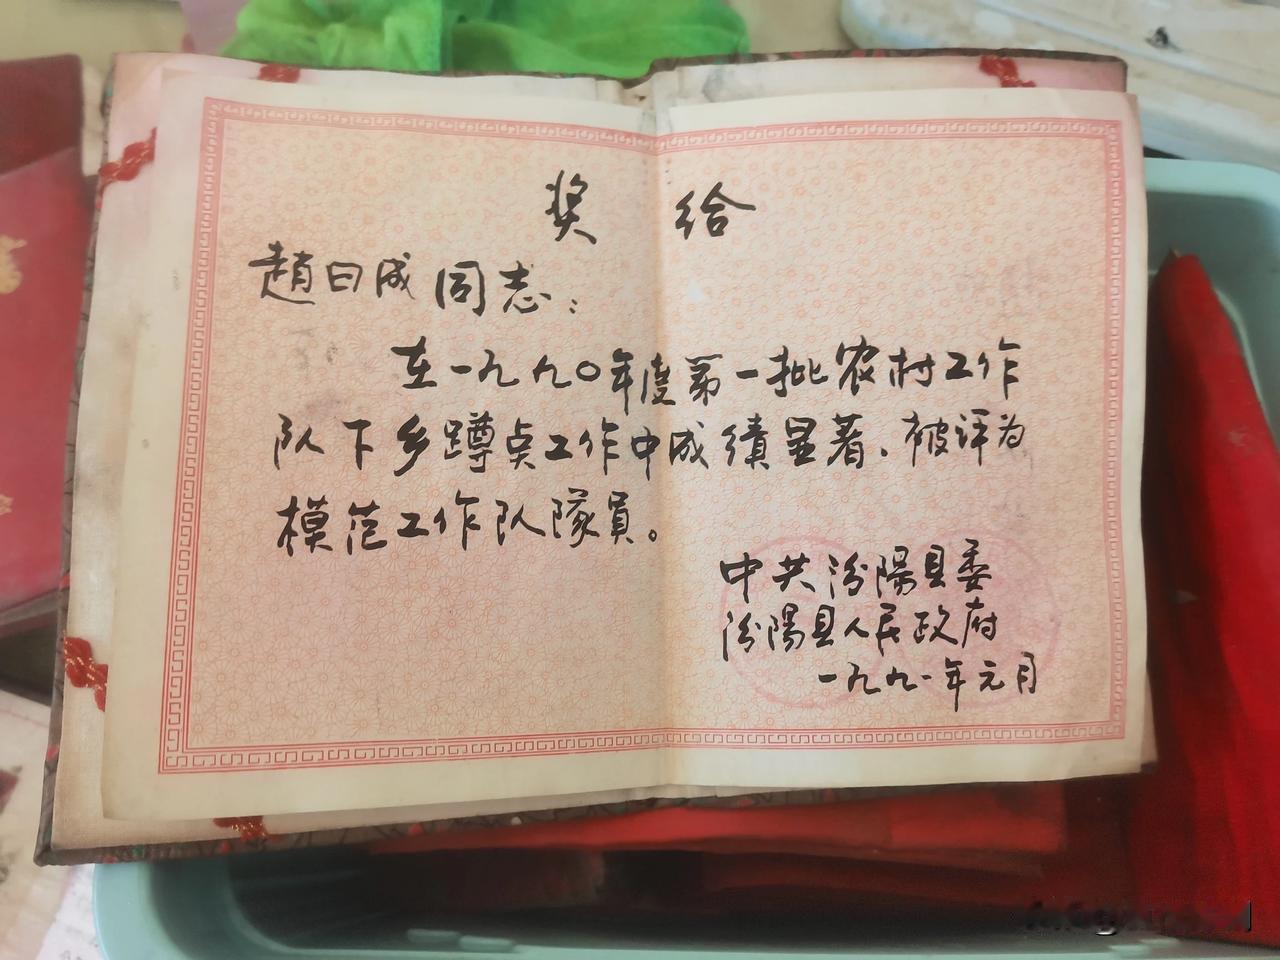 奖 给
趙日成同志：
在一九九〇年度第一批农村工作
队下乡蹲点工作中成绩显著、被评为
模范工作队隊員。
中共汾陽县委
汾陽县人民政府
一九九一年元月